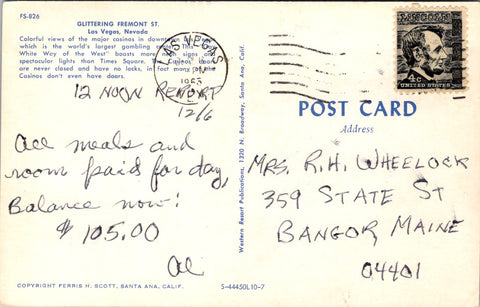 FS-826
GLITTERING FREMONT ST.
Las Vegas, Nevada
Colorful views of the major casinos in downtown
which is the world's largest gambling
White Way of the West" boasts more neon signs and
spectacular lights than Times Square. The Casinos' doors
are never closed and have no locks, in fact many of the
Casinos don't even have doors.
LAS VEGAS
PM
12 NOON REPORT
12/6
All meals and
room paid for day,
Balance now:
$ 105.00
Al
COPYRIGHT FERRIS H. SCOTT, SANTA ANA, CALIF.
S-44450L10-7
Western Resort Publications, 1220 N. Broadway, Santa Ana, Calif.
LINCOLN
4c
UNITED STATES
POST CARD
Address
MRS. R.H. WHEELOCK
359 STATE ST
BANGOR MAINE
04401